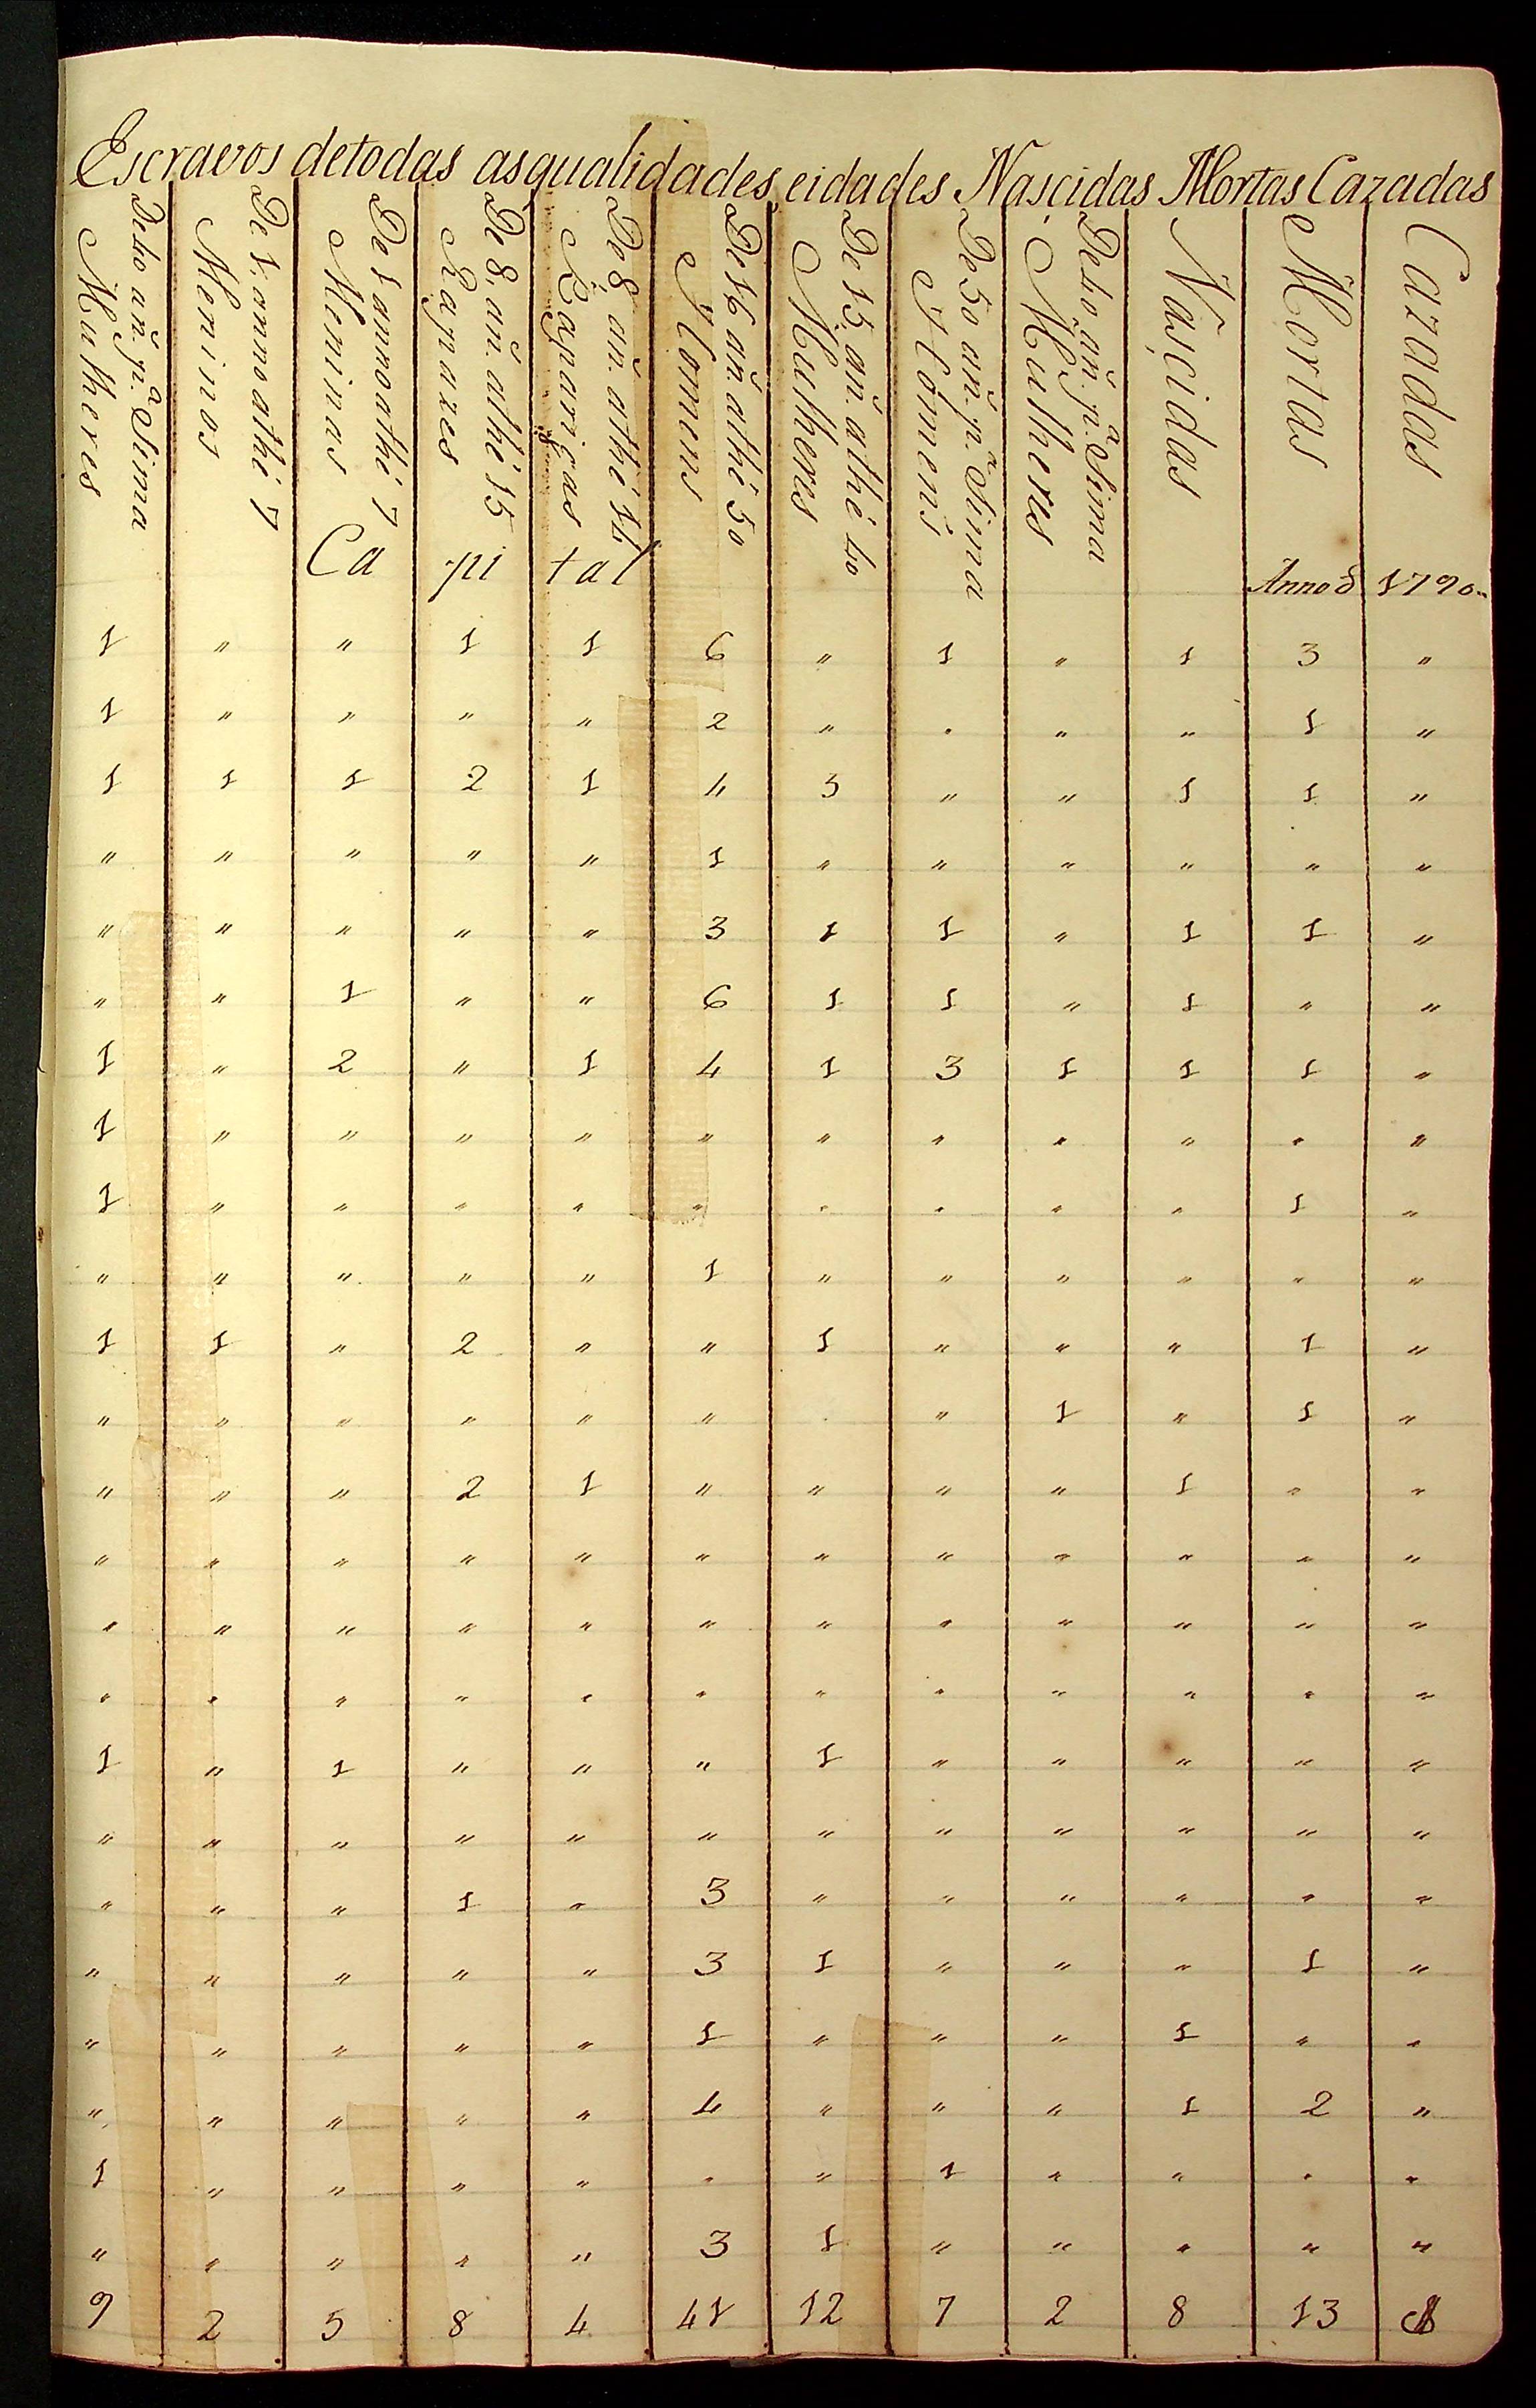 Escravos detodas asqualidades, eidades Nascidas Mortas Cazadas
De 40 añ. p.ª Sima
Mulheres
De 1, anno athé 7
Meninos
De 1 anno athé 7
Meninas
De 8, añ. athé 15
Rapazes
De 8, añ. athé 14
Raparigas
De 16 añ. athé 50
Homens
De 15, añ. athé 40
Mulheres
De 50 añ. p.ª Sima
Homens
De 40 añ. p.ª Sima
Mulheres
Nascidas
Mortas
Cazadas
Ca pi tal Anno d 1790
1 " " 1 1 6 " 1 " 1 3 "
1 " " " " 2 " " " " 1 "
1 1 1 2 1 4 3 " " 1 1 "
" " " " " 1 " " " " " "
" " " " " 3 1 1 " 1 1 "
" " 1 " " 6 1 1 " 1 " "
1 " 2 " 1 4 1 3 1 1 1 "
1 " " " " " " " " " " "
1 " " " " " " " " " 1 "
" " " " " 1 " " " " " "
1 1 " 2 " " 1 " " " 1 "
" " " " " " " " 1 " 1 "
" " " 2 1 " " " " 1 " "
" " " " " " " " " " " "
" " " " " " " " " " " "
" " " " " " " " " " " "
1 " 1 " " " 1 " " " " "
" " " " " " " " " " " "
" " " 1 " 3 " " " " " "
" " " " " 3 1 " " " 1 "
" " " " " 1 " " " 1 " "
" " " " " 4 " " " 1 2 "
1 " " " " " " 1 " " " "
" " " " " 3 1 " " " " "
9 2 5 8 4 41 12 7 2 8 13